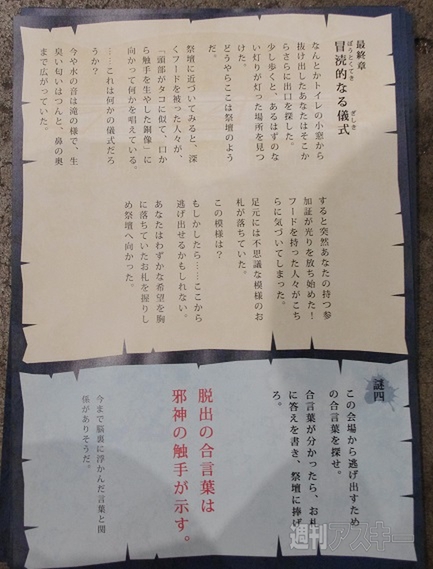 最終章
冒涜的なる儀式
ぼうとくてき
ぎしき
なんとかトイレの小窓から
抜け出したあなたはそこか
らさらに出口を探した。
少し歩くと、あるはずのな
い灯りが灯った場所を見つ
けた。
どうやらここは祭壇のよう
だ。
祭壇に近づいてみると、深
くフードを被った人々が、
「頭部がタコに似て、口か
ら触手を生やした銅像」に
向かって何かを唱えている。
……これは何かの儀式だろ
うか？
今や水の音は滝の様で、生
臭い匂いはつんと、鼻の奥
まで広がっていた。
すると突然あなたの持つ参
加証が光りを放ち始めた！
フードを持った人々がこち
らに気づいてしまった。
足元には不思議な模様のお
札が落ちていた。
この模様は？
もしかしたら……ここから
逃げ出せるかもしれない。
あなたはわずかな希望を胸
に落ちていたお札を握りし
め祭壇へ向かった。
謎四
この会場から逃げ出すため
の合言葉を探せ。
合言葉が分かったら、お札
に答えを書き、祭壇に捧げ
ろ。
脱出の合言葉は
邪神の触手が示す。
今まで脳裏に浮かんだ言葉と関
係がありそうだ。
週刊アスキー